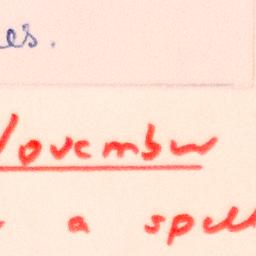 es.
November
a spell